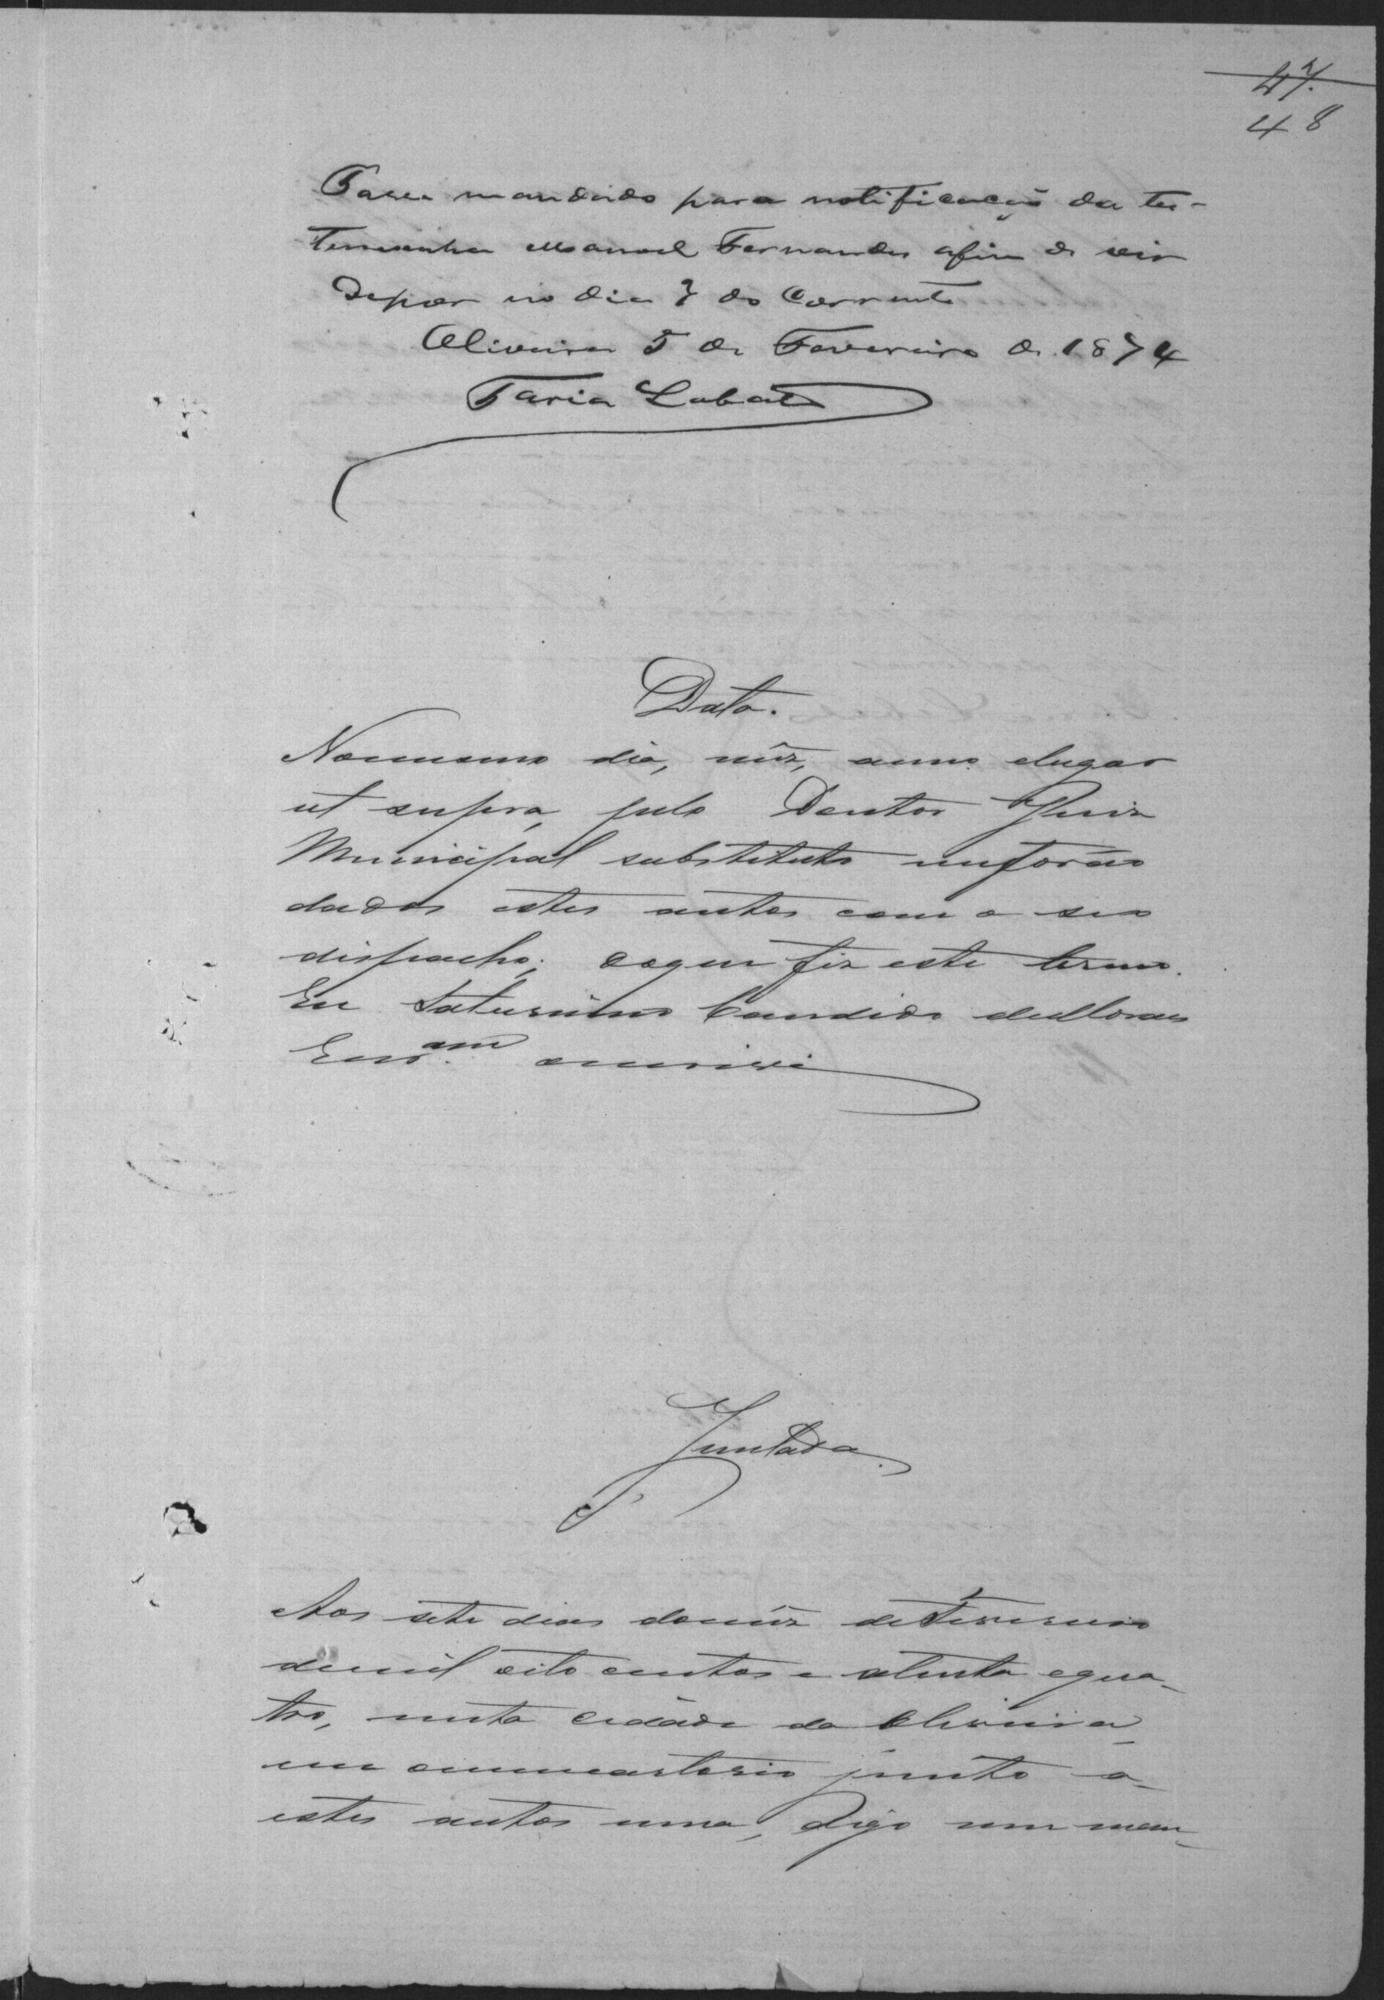 47.
48
Passe mandado para notificação da tes-
temunha Manoel Fernandes afim de vir
depor no dia 7 do Corrente
Oliveira 5 de Fevereiro de 1874
Faria Lobato
Data.
Nomesmo dia, mês, anno elugar
ut supra, pelo Doutor Juiz
Municipal substituto meforão
dados estes autos com o seu
despacho; doque fiz este termo.
Eu Saturnino Candido de
Escr.am oescrivi
Juntada.
Aos sete dias domês deFevereiro
demil oito centos e setenta equa-
tro, nesta Cidade da Oliveira
em omeucartorio junto a-
estes autos uma, digo um man-